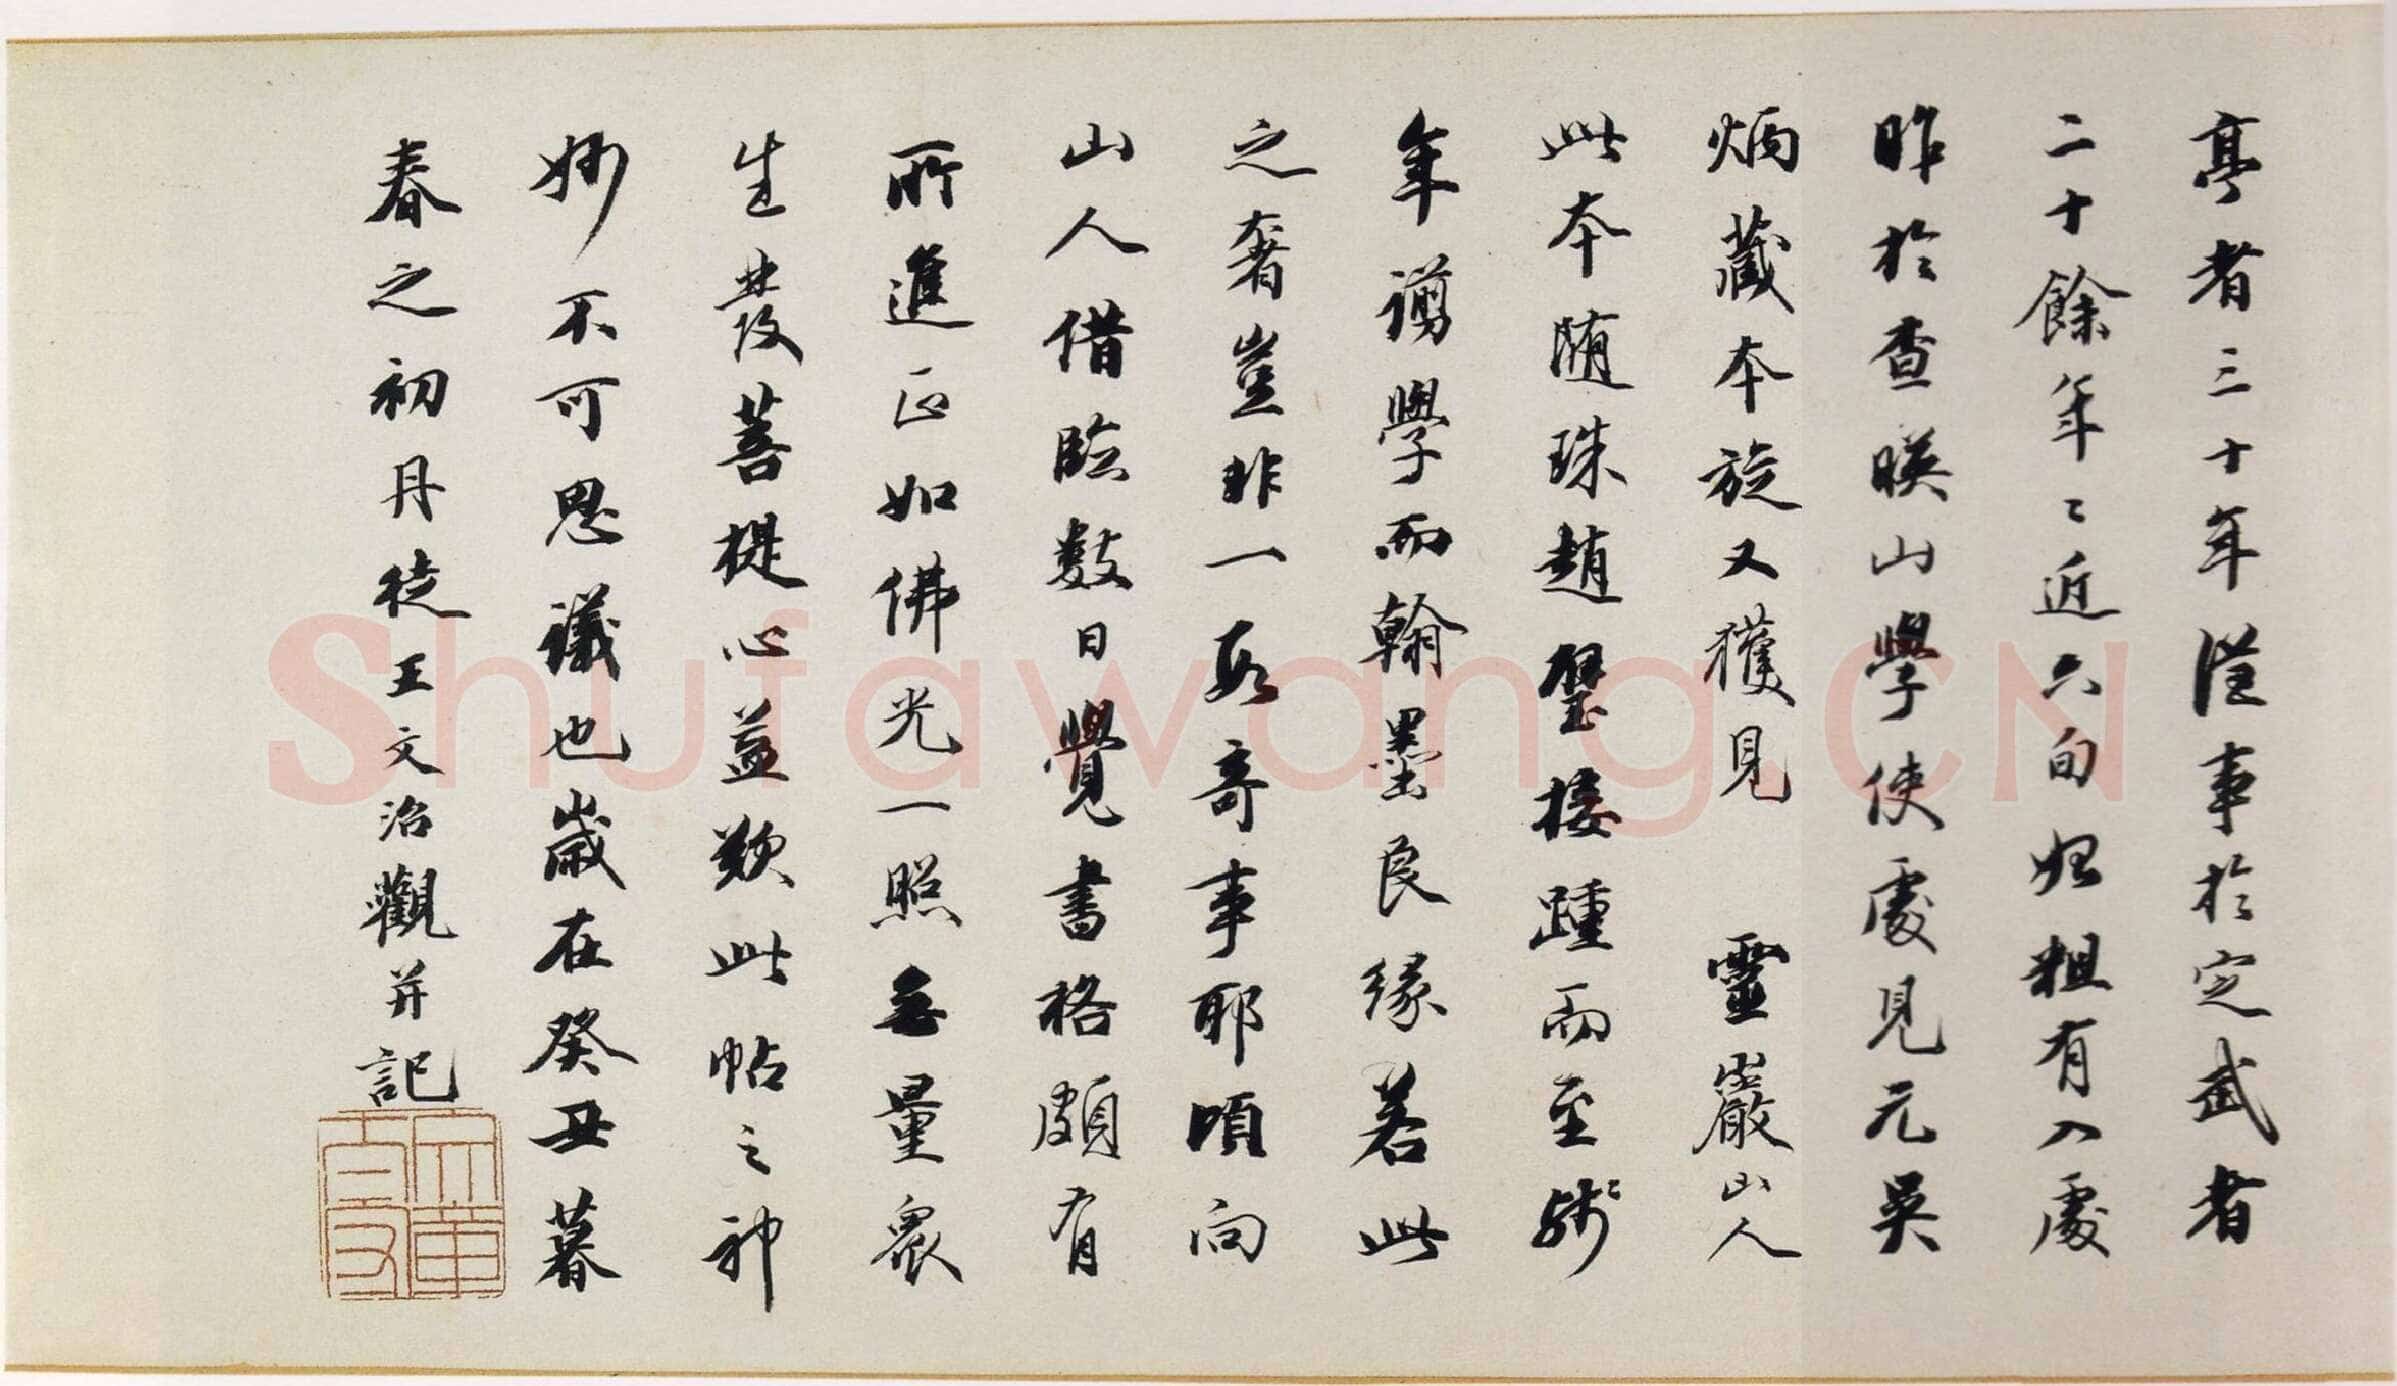 亭者三十年從事於定武者
二十餘年年近六旬始粗有入處
昨於查暎山學使處見元吳
炳藏本旋又獲見 靈巖山人
此本随珠趙璧接踵而至殘
年謭學而翰墨良緣若此
之奢豈非一段奇事耶頃向
山人借臨數日覺書格頗有
所進正如佛光一照無量衆
生發菩提心益歎此帖之神
妙不可思議也歲在癸丑暮
春之初丹徒王文治觀并記
Shufawang.CN